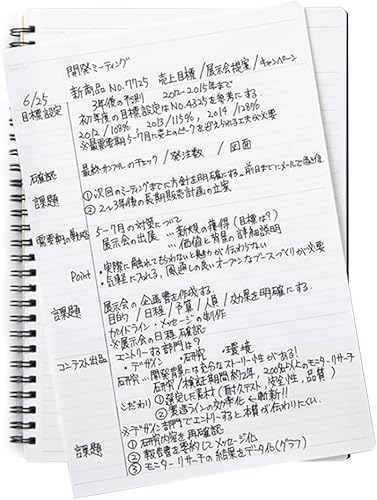 開発ミーティング
6/25 新商品 No.7725 売上目標/展示会提案/キャンペーン
目標設定 3年後の予測 2012-2015年まで
初年度の目標設定はNo.4325を参考にする.
2012/108%, 2013/115%, 2014/128%
※最重要期5-7月に売上のピークを迎えられる工夫が必要
確認 最終サンプルのチェック/発注数/図面
課題 ① 次回のミーティングまでに方針を明確にする…前日までにメールで返信.
② 2~3年後の長期販売計画の立案
需要期の戦略 5-7月の対策について
展示会の出展 …新規の獲得(目標は?)
…価値と背景の詳細説明
Point ・実際に触れてもらわないと魅力が伝わらない
・気軽に入れる,風通しの良いオープンなブースづくりが必要
課題 展示会の企画書を作成する.
目的/日程/予算/人員/効果を明確にする.
ガイドライン・メッセージの制作
※展示会の日程確認
コンテスト出品 エントリーする部門は?
・デザイン ・研究 ・環境
研究…開発背景には充分なストーリー性がある!
研究/検証期間約2年, 200名以上のモニターリサーチ
こだわり ① 選定した素材(耐久テスト, 安全性, 品質)
② 製造ラインの効率化 → 斬新!!
※デザイン部門でエントリーすると本質が伝わりにくい.
課題 ① 研究内容を再確認
② 報告書を要約してメッセージ化
③ モニターリサーチの結果をデータ化(グラフ)